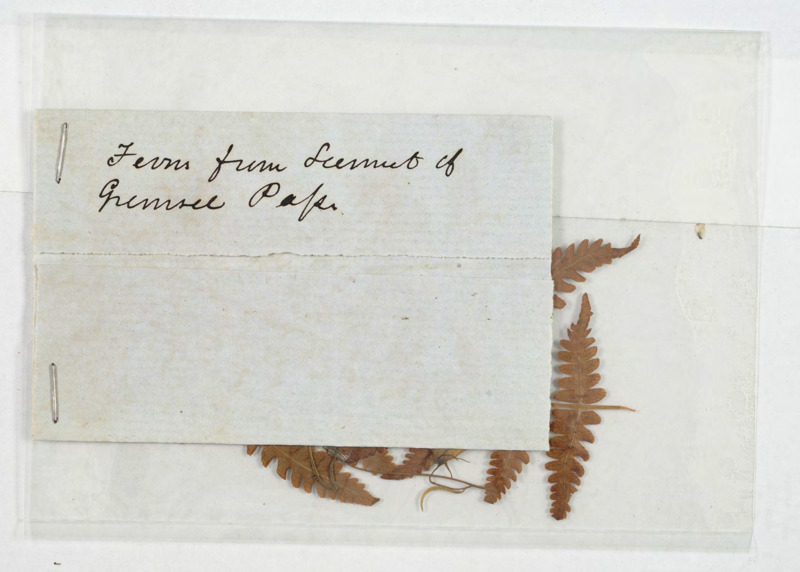 Ferns from Summit of
Gremsel Pass.